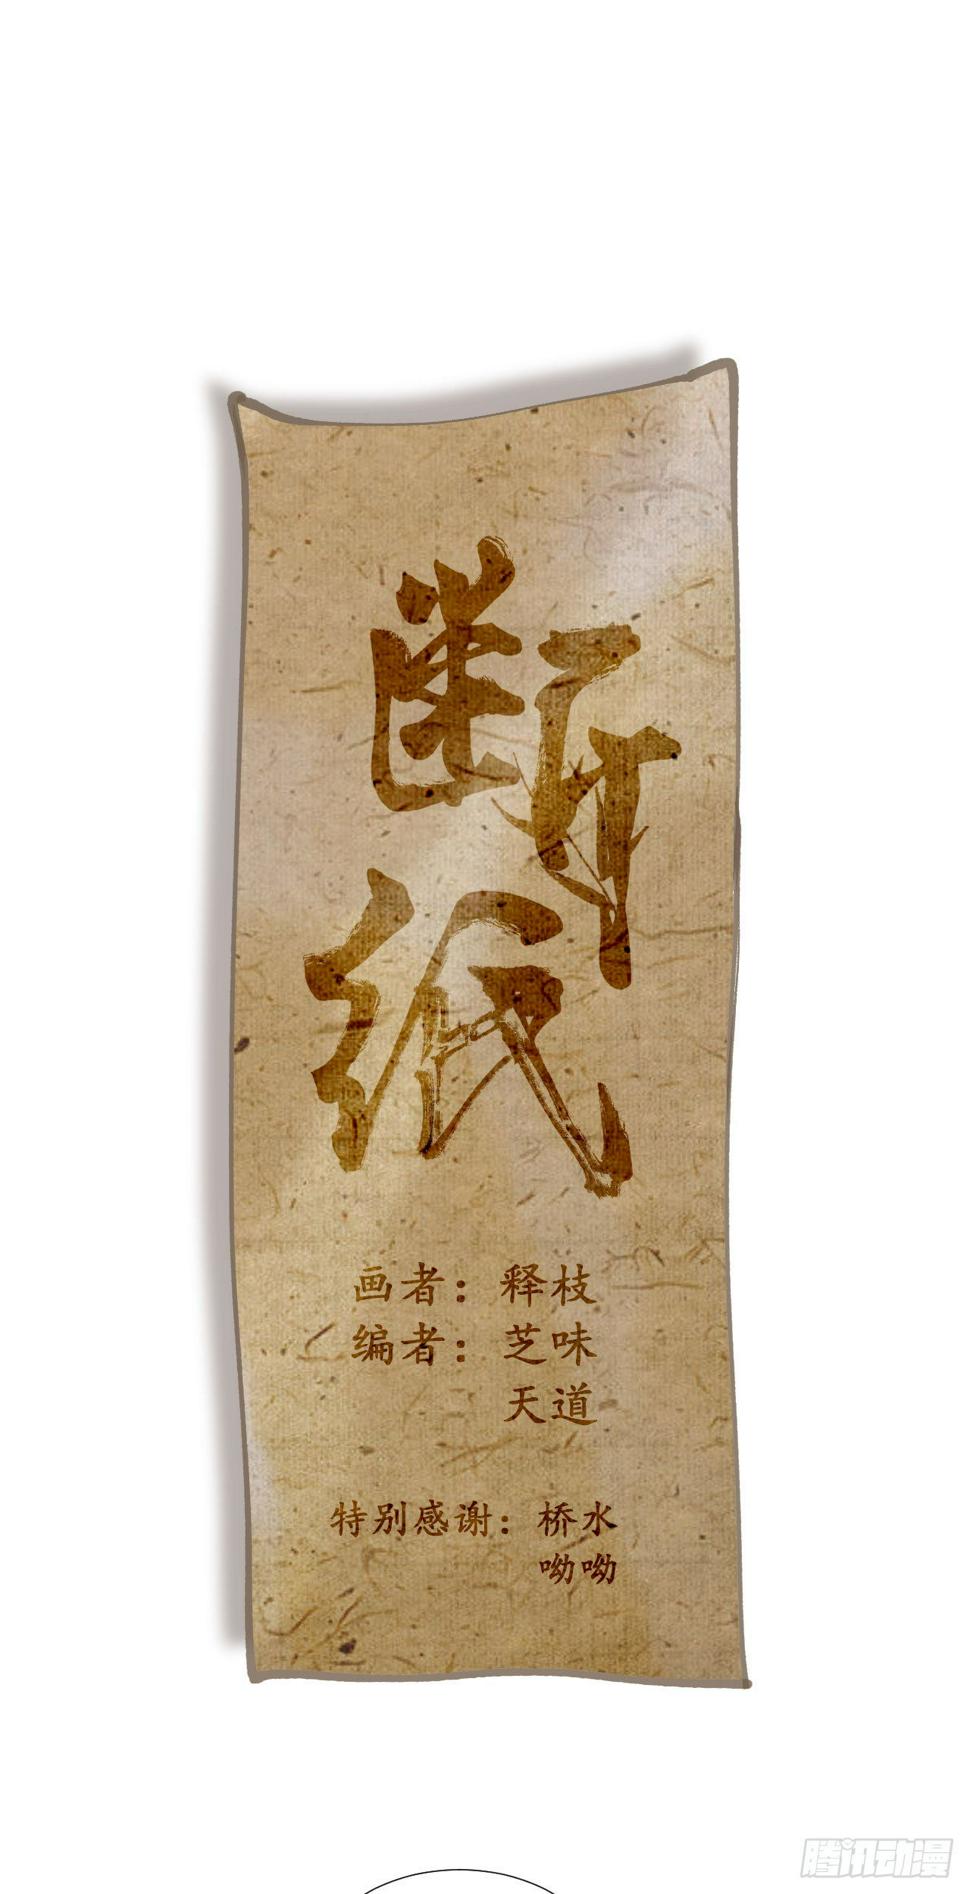 断
纸
画者：释枝
编者：芝味
天道
特别感谢：桥水
呦呦
腾讯动漫